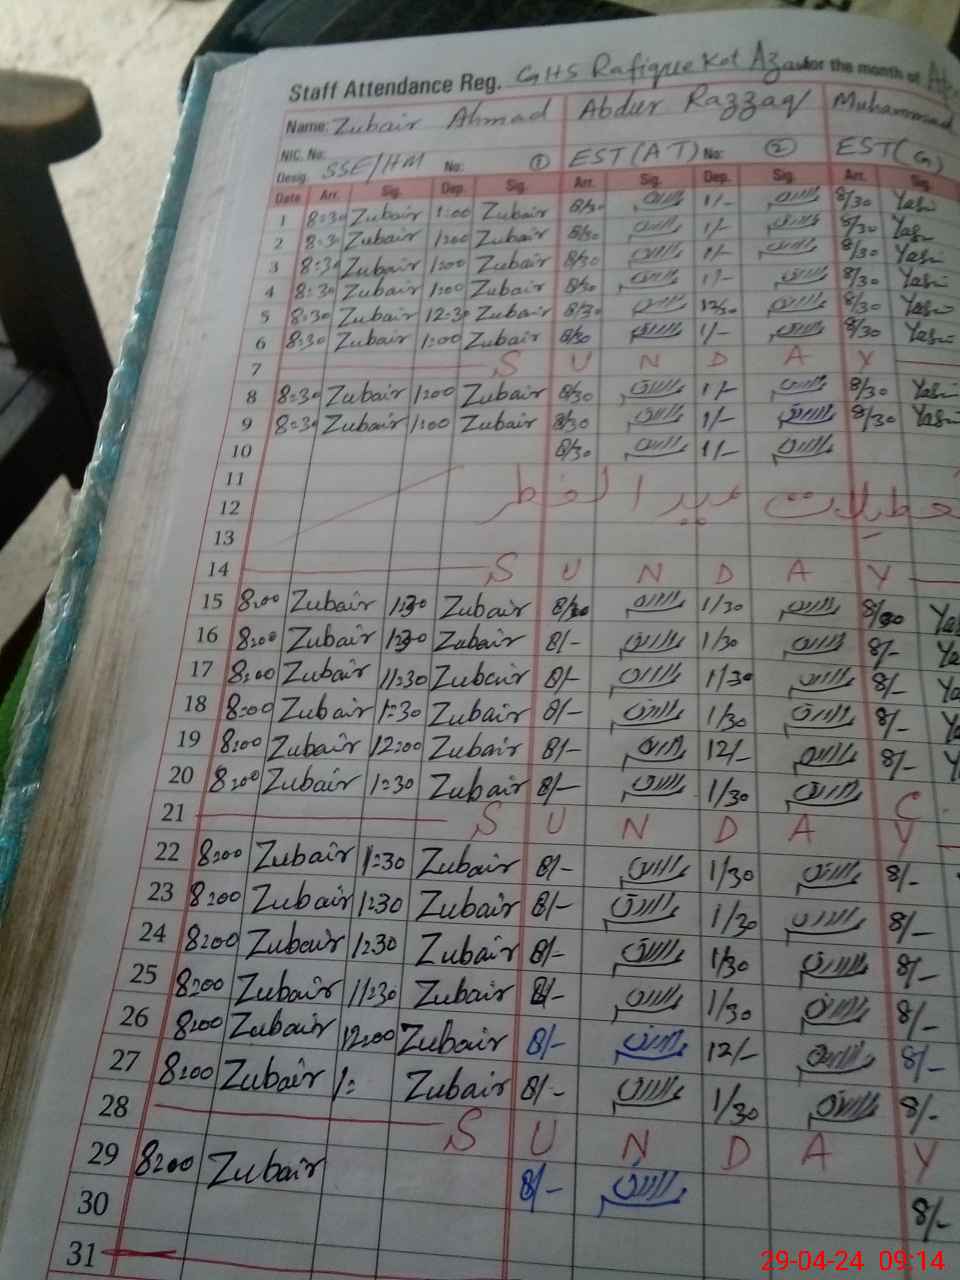 Staff Attendance Reg. GHS Rafique Kot Azam for the month of
Name: Zubair Ahmad Abdur Razzaq Muhammad
NIC. No:
Desig. SSE/HM No: ① EST (AT) No: ② EST (G)
Date Arr. Sig. Dep. Sig. Arr. Sig. Dep. Sig. Arr. Sig.
1 8:30 Zubair 1:00 Zubair 8/30 1/- 8/30
2 8:30 Zubair 1:00 Zubair 8/30 1/- 8/30
3 8:30 Zubair 1:00 Zubair 8/30 1/- 8/30
4 8:30 Zubair 1:00 Zubair 8/30 1/- 8/30
5 8:30 Zubair 12:30 Zubair 8/30 12/30 8/30
6 8:30 Zubair 1:00 Zubair 8/30 1/- 8/30
7 S U N D A Y
8 8:30 Zubair 1:00 Zubair 8/30 1/- 8/30
9 8:30 Zubair 1:00 Zubair 8/30 1/- 8/30
10 8/30 1/-
11
12 تعطیلات عید الفطر
13
14 S U N D A Y
15 8:00 Zubair 1:30 Zubair 1/30
16 8:00 Zubair 1:30 Zubair 8/- 1/30 8/-
17 8:00 Zubair 1:30 Zubair 8/- 1/30 8/-
18 8:00 Zubair 1:30 Zubair 8/- 1/30 8/-
19 8:00 Zubair 12:00 Zubair 8/- 12/- 8/-
20 8:00 Zubair 1:30 Zubair 8/- 1/30 C
21 S U N D A Y
22 8:00 Zubair 1:30 Zubair 8/- 1/30 8/-
23 8:00 Zubair 1:30 Zubair 8/- 1/30 8/-
24 8:00 Zubair 1:30 Zubair 8/- 1/30 8/-
25 8:00 Zubair 1:30 Zubair 8/- 1/30 8/-
26 8:00 Zubair 12:00 Zubair 8/- 12/- 8/-
27 8:00 Zubair 1: Zubair 8/- 1/30 8/-
28 S U N D A Y
29 8:00 Zubair 8/- 8/-
30
31
29-04-24 09:14